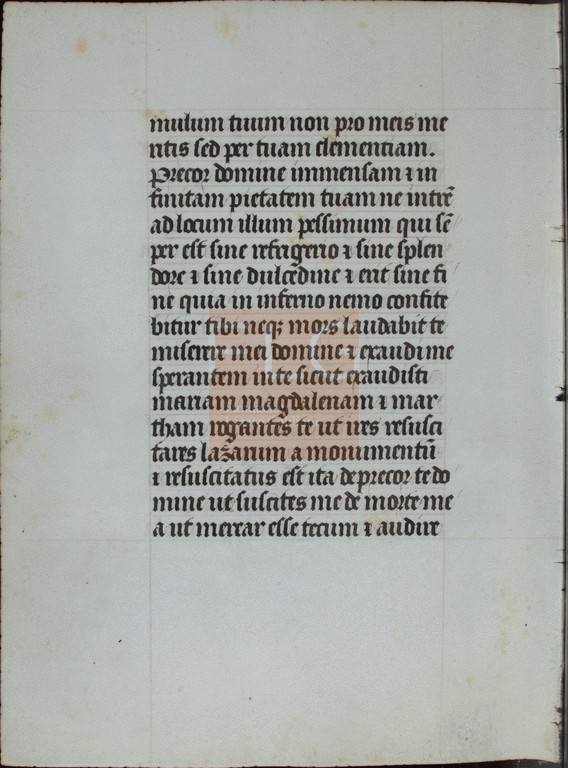 mulum tuum non pro meis me
ritis sed per tuam clementiam.
Precor domine immensam ⁊ in
finitam pietatem tuam ne intrē
ad locum illum pessimum qui sē
per est sine refrigerio ⁊ sine splen
dore ⁊ sine dulcēdine ⁊ erit sine fi
ne quia in inferno nemo confite
bitur tibi neqꝫ mors laudabit te
miserere mei domine ⁊ exaudi me
sperantem in te sicut exaudisti
mariam magdalenam ⁊ mar
tham rogantes te ut ires resusci
tares lazarum a monumentū
⁊ resuscitatus est ita deprecor te do
mine ut suscites me de morte me
a ut merear esse tecum ⁊ audire